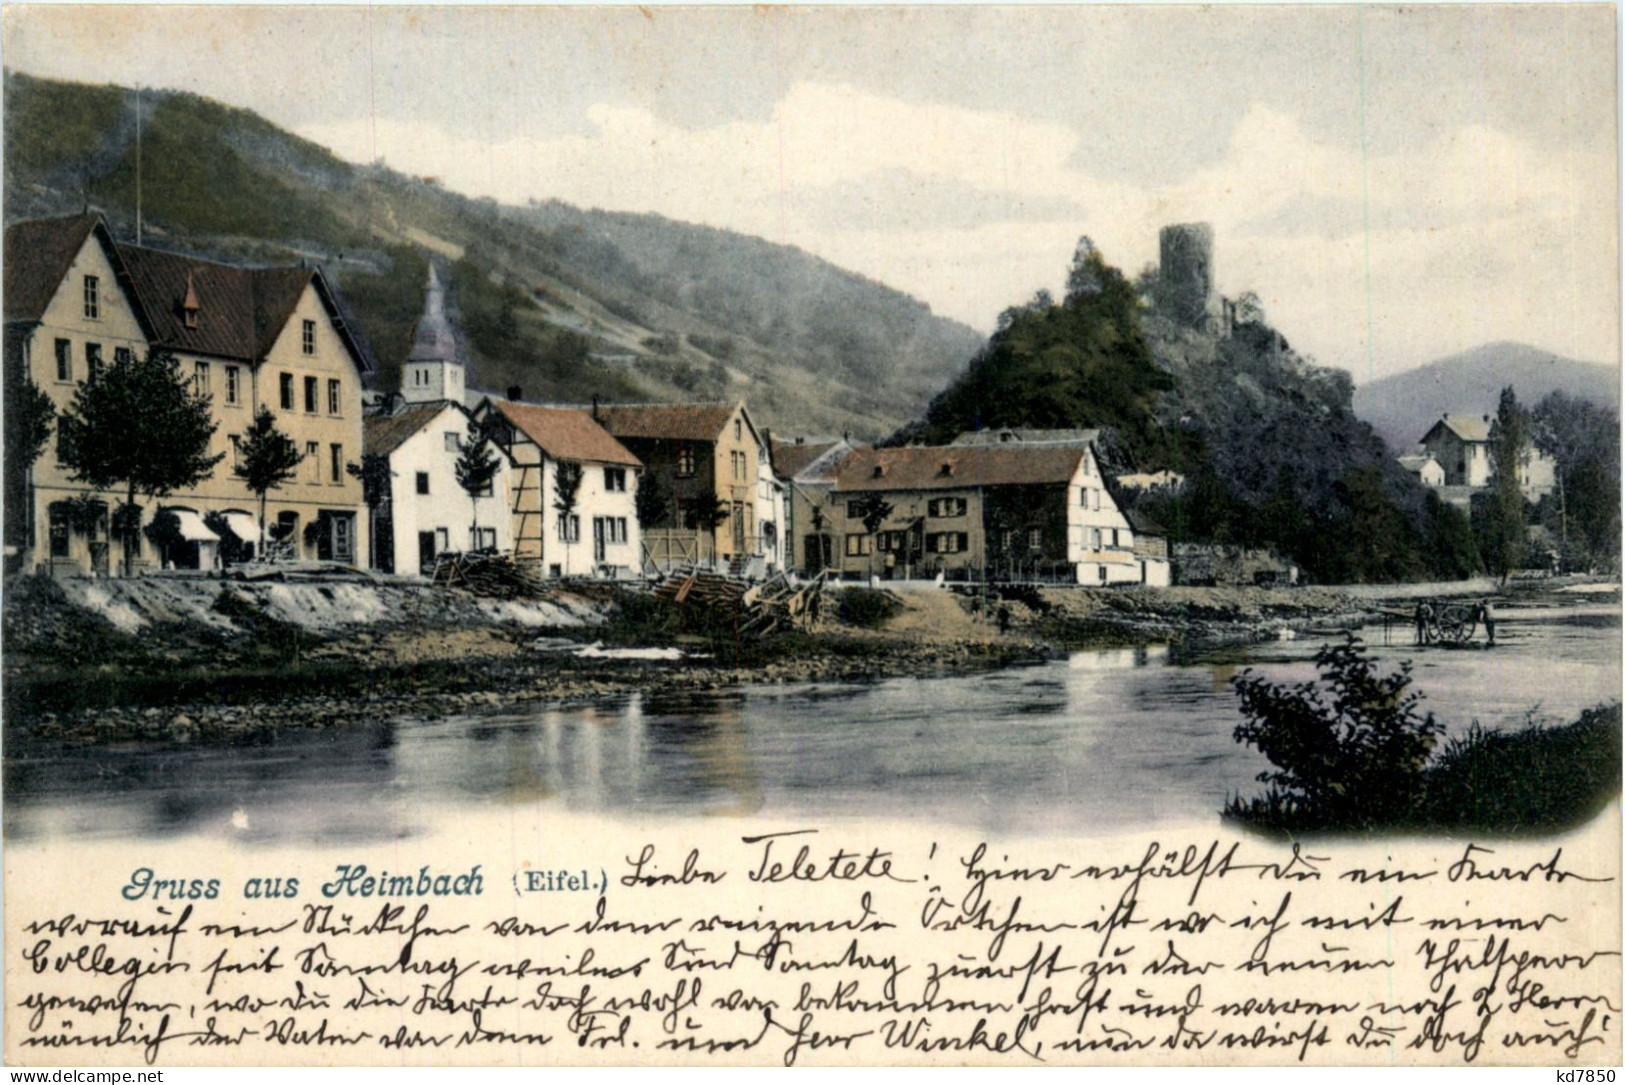 Gruss aus Heimbach (Eifel.) Liebe Teletete! Hier erhälst Du ein Karte
worauf ein Stückchen von dem reizende Örtchen ist wo ich mit einer
Collegin seit Samstag weile Sind Samstag zuerst zu der neuen Thalsperr
gewesen, wo du die Karte doch wohl von bekommen hast und waren noch 2 Herrn
nämlich der Vater von dem Frl. und Herr Winkel, nun da wirst Du doch auch
kd7850